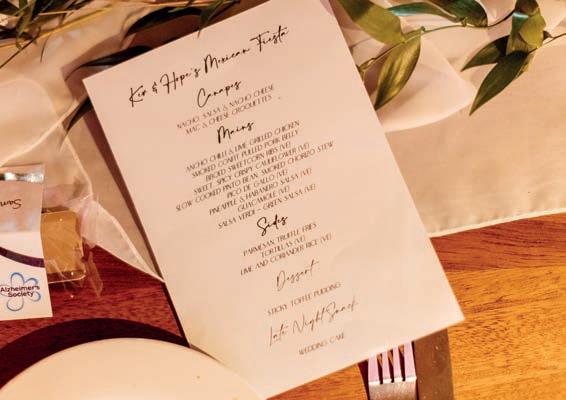 Kim & Hope's Mexican Fiesta
Canapes
NACHO, SALSA & NACHO CHEESE
MAC & CHEESE CROQUETTES
Mains
ANCHO CHILE & LIME GRILLED CHICKEN
SMOKED CONFIT PULLED PORK BELLY
BBQ'ED SWEETCORN RIBS (VE)
SWEET, SPICY CRISPY CAULIFLOWER (VE)
SLOW COOKED PINTO BEAN, SMOKED CHORIZO STEW
PICO DE GALLO (VE)
PINEAPPLE & HABANERO SALSA (VE)
GUACAMOLE (VE)
SALSA VERDE - GREEN SALSA (VE)
Sides
PARMESAN, TRUFFLE FRIES
TORTILLAS (VE)
LIME AND CORIANDER RICE (VE)
Dessert
STICKY TOFFEE PUDDING
Late Night Snack
WEDDING CAKE
Alzheimer's
Society